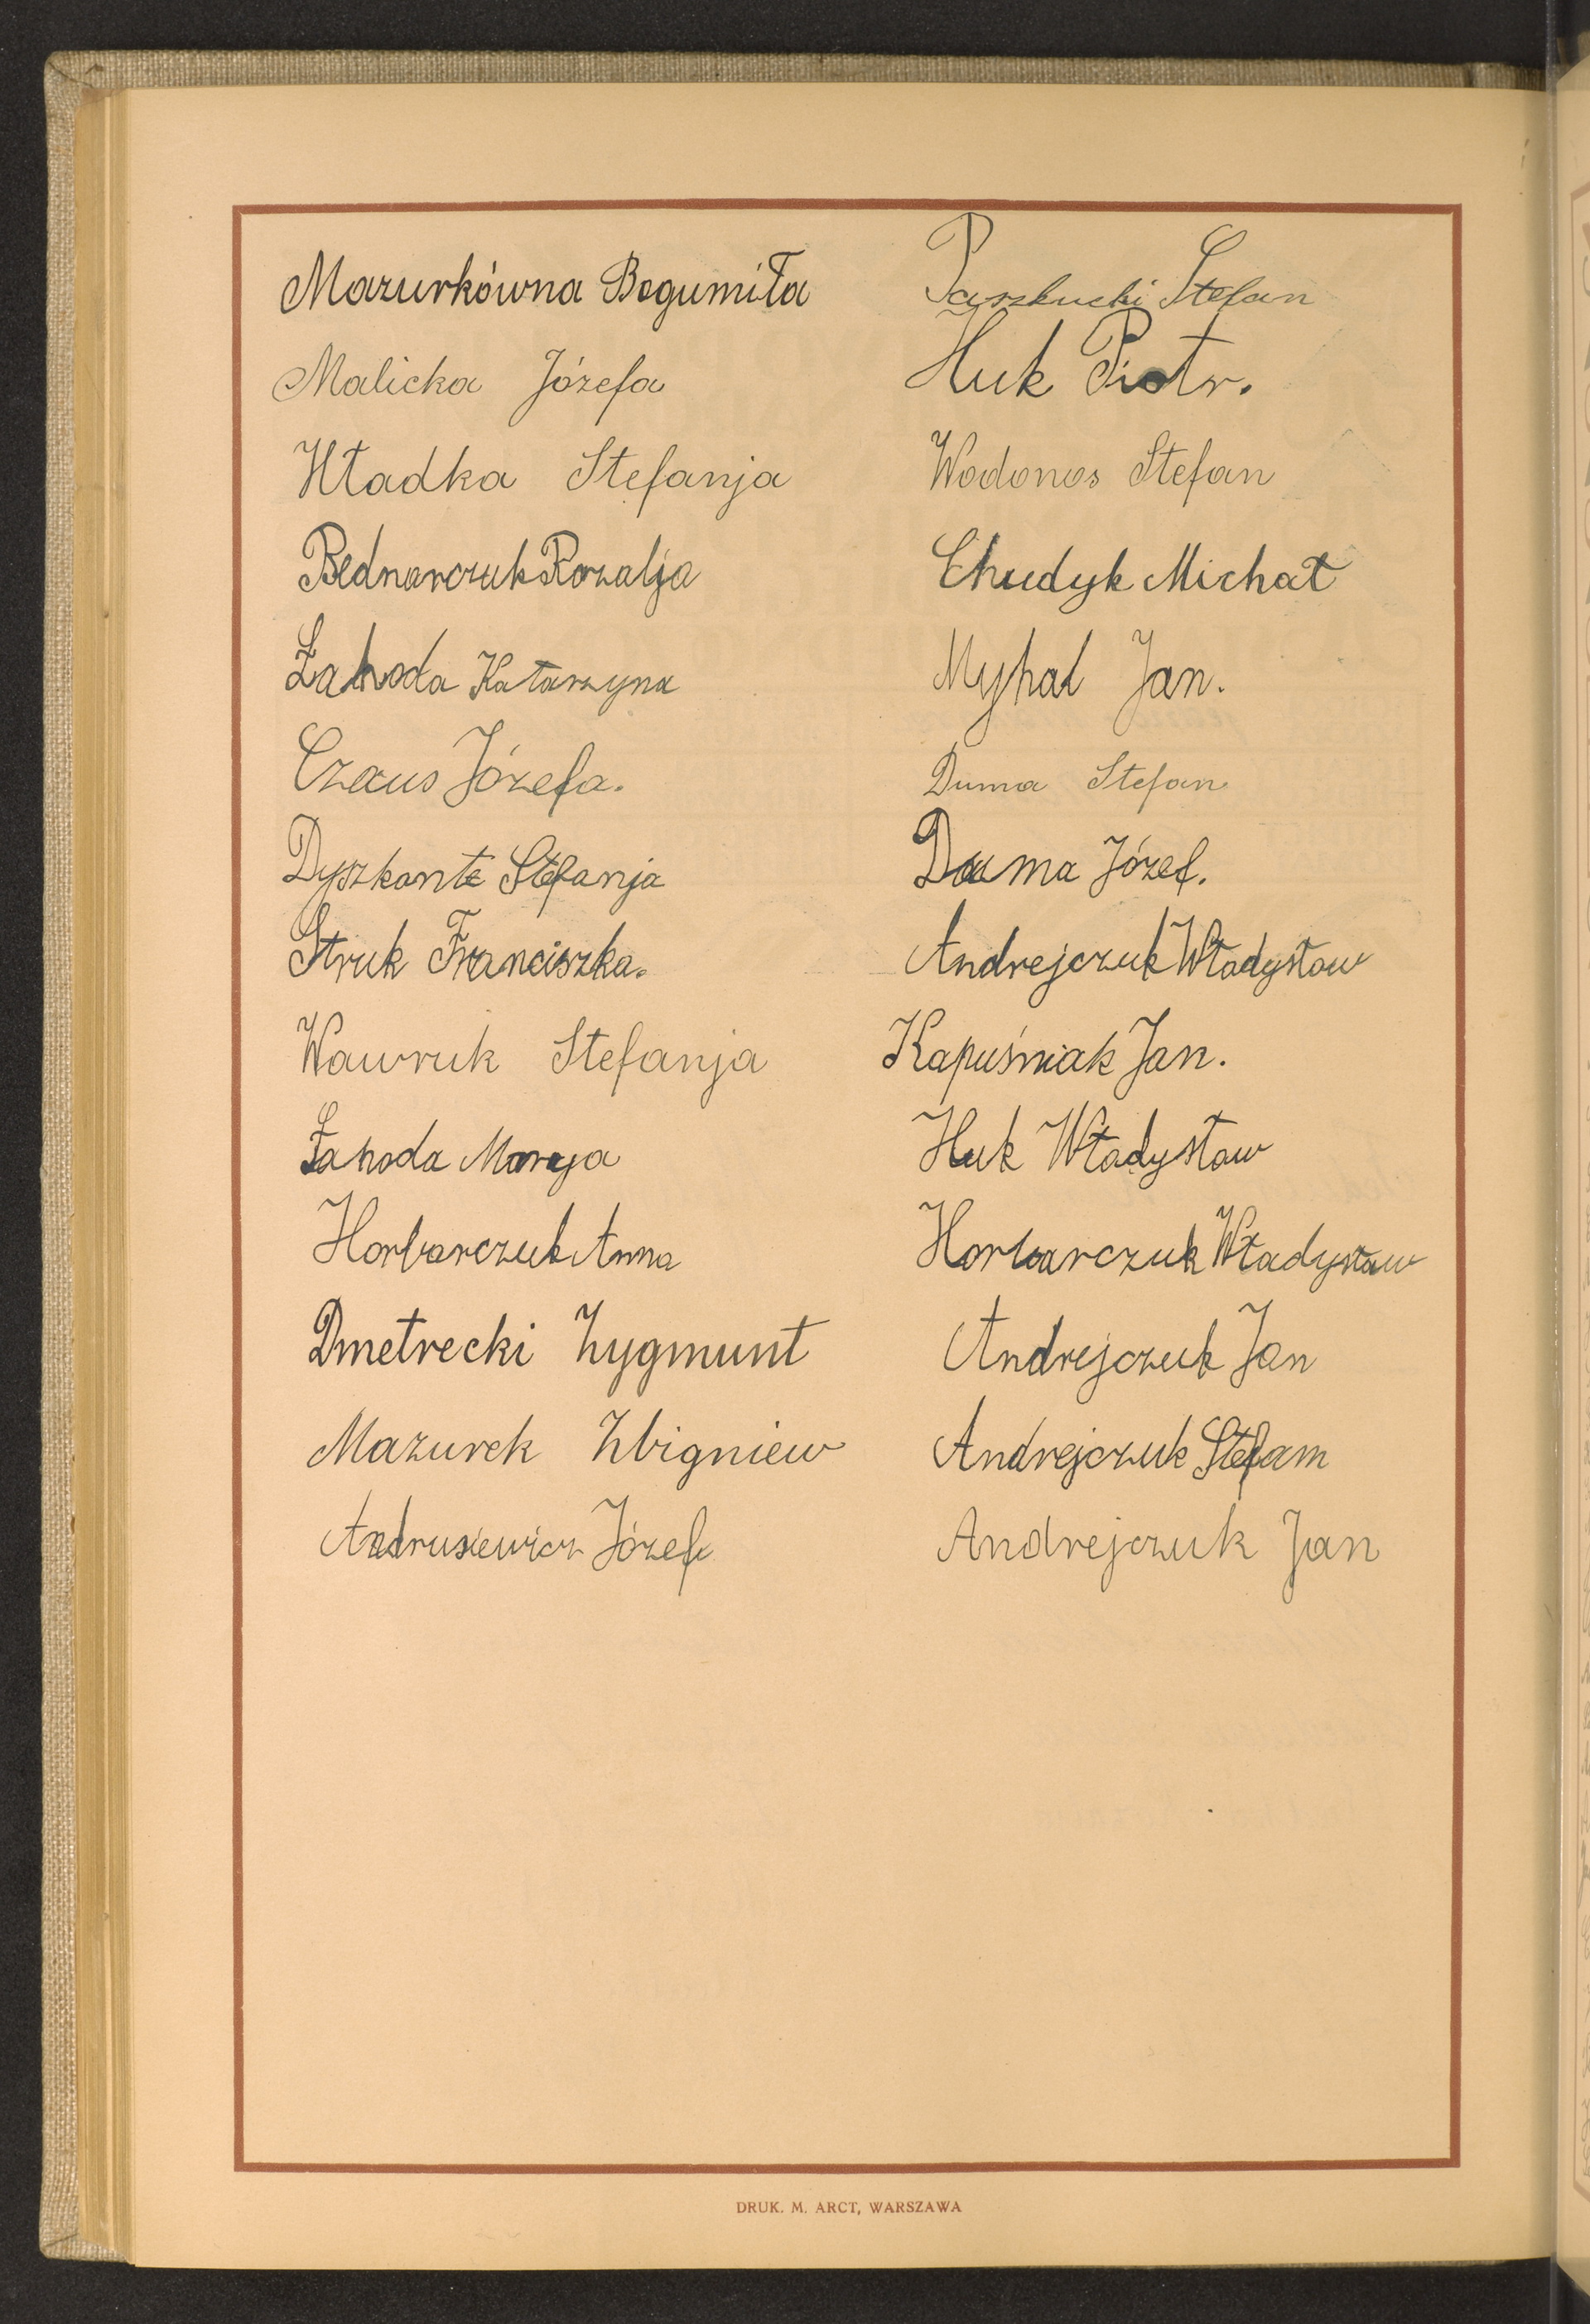 Mazurkówna Bogumiła
Malicka Józefa
Hładka Stefanja
Bednarczuk Rozalja
Łahoda Katarzyna
Czaus Józefa.
Dyszkante Stefanja
Struk Franciszka.
Wawruk Stefanja
Łahoda Marya
Horbarczuk Anna
Dmetrecki Zygmunt
Mazurek Zbigniew
Andrusiewicz Józef
Paszkucki Stefan
Huk Piotr.
Wodonos Stefan
Chudyk Michał
Myhal Jan.
Duma Stefan
Duma Józef.
Andrejczuk Władysław
Kapuśniak Jan.
Huk Władysław
Horbarczuk Władysław
Andrejczuk Jan
Andrejczuk Stefam
Andrejczuk Jan
DRUK. M. ARCT, WARSZAWA